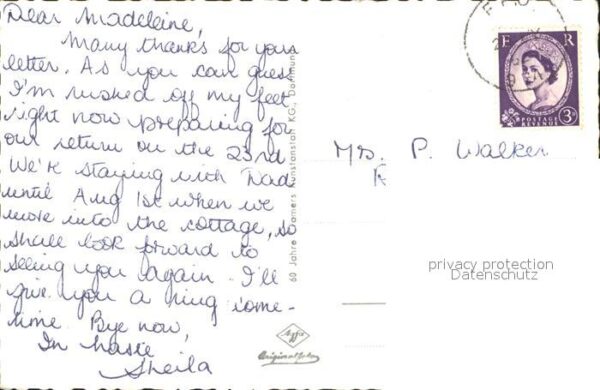 Dear Madeleine,
Many thanks for your
letter. As you can guess
I'm rushed off my feet
right now preparing for
our return on the 23rd
We're staying with Dad
until Aug 1st when we
move into the cottage, so
shall look forward to
seeing you again. I'll
give you a ring some-
time. Bye now,
In haste
Sheila
60 Jahre Cramers Kunstanstalt KG., Dortmund
Agfa
F R
POSTAGE
REVENUE
3D
Mrs. P. Walker
privacy protection
Datenschutz